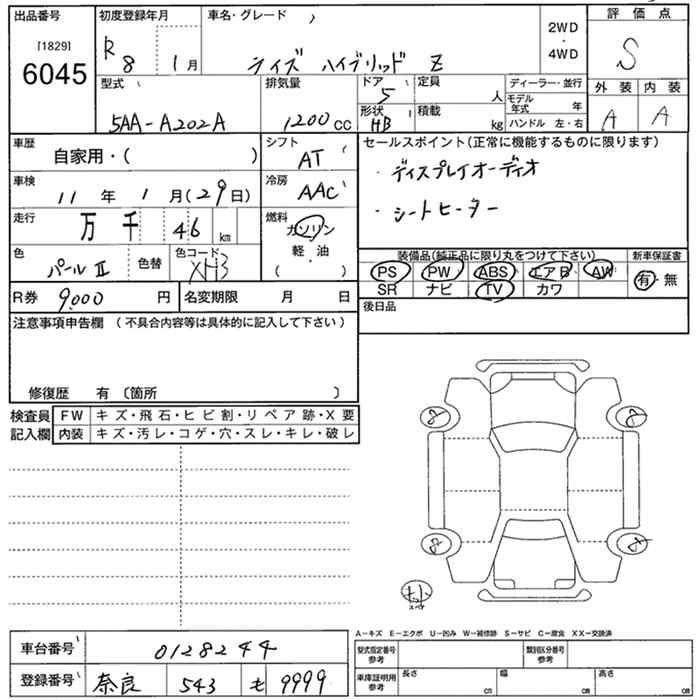 出品番号 初度登録年月 車名・グレード 2WD・4WD 評価点
[1829]
6045
R8 1月 ライズ ハイブリッド Z S
型式 排気量 ドア 5 定員 人 ディーラー・並行 外装 内装
5AA-A202A 1200CC 形状 HB 積載 kg モデル年式 年 A A
ハンドル 左・右
車歴 自家用・( ) シフト AT セールスポイント(正常に機能するものに限ります)
車検 11年 1月(29日) 冷房 AAC ・ディスプレイオーディオ
走行 万 千 46 km 燃料 ガソリン 軽・油 ( ) ・シートヒーター
色 パールⅡ 色替 色コード XH3 装備品(純正品に限り丸をつけて下さい) 新車保証書
PS PW ABS エアB AW 有・無
SR ナビ TV カワ
R券 9,000円 名変期限 月 日 後日品
注意事項申告欄(不具合内容等は具体的に記入して下さい)
修復歴 有〔箇所 〕
検査員記入欄 FW キズ・飛石・ヒビ割・リペア跡・X要
内装 キズ・汚レ・コゲ・穴・スレ・キレ・破レ
8 8
8 8
スペア
A-キズ E-エクボ U-凹み W-補修跡 S-サビ C-腐食 XX-交換済
車台番号 0128244 型式指定番号 参考 類別区分番号 参考
登録番号 奈良 543 も 9999 車庫証明用 参考 長さ cm 幅 cm 高さ cm